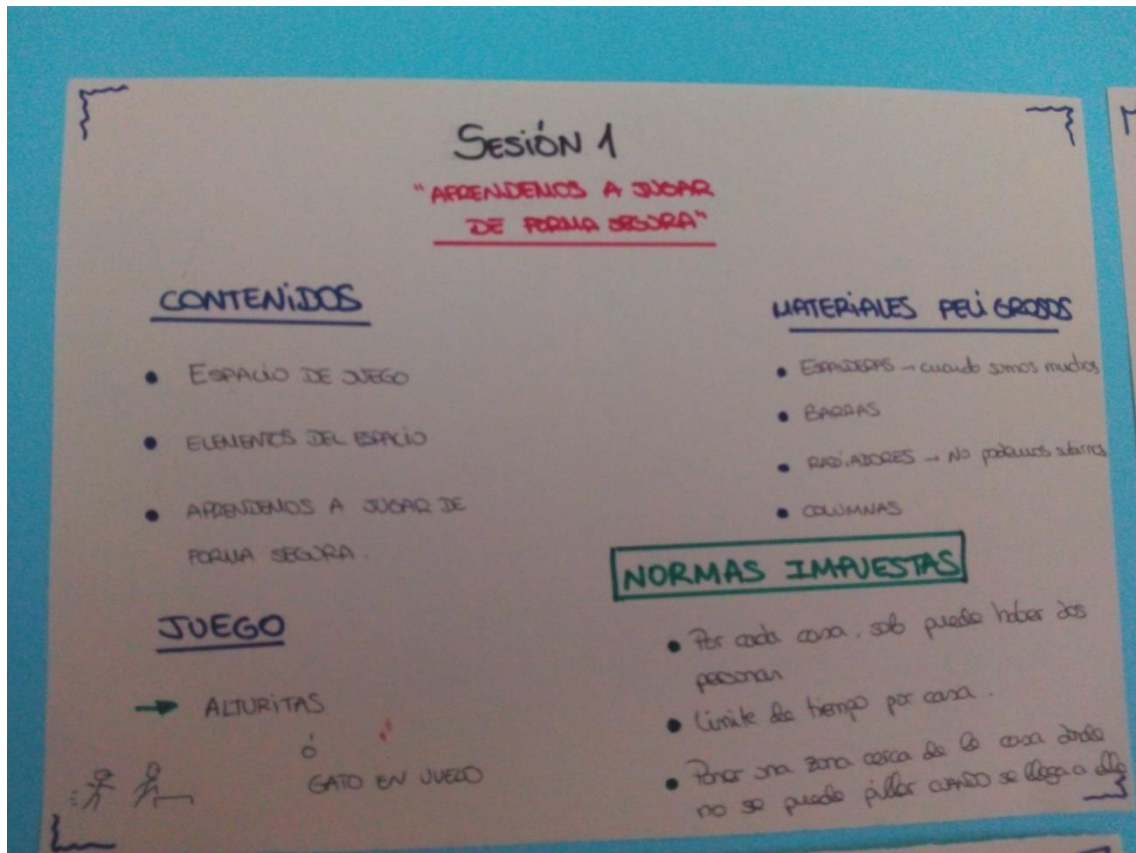 SESIÓN 1
"APRENDEMOS A JUGAR
DE FORMA SEGURA"
CONTENIDOS
• ESPACIO DE JUEGO
• ELEMENTOS DEL ESPACIO
• APRENDEMOS A JUGAR DE
FORMA SEGURA.
JUEGO
→ ALTURITAS
ó
GATO EN
MATERIALES PELIGROSOS
• ESPALDERAS → cuando somos muchos
• BARRAS
• RADIADORES → No podemos subirnos
• COLUMNAS
NORMAS IMPUESTAS
• Por cada casa, solo puede haber dos
personas
• Límite de tiempo por casa.
• Poner una zona cerca de la casa donde
no se puede pillar CUANDO se llega a ella